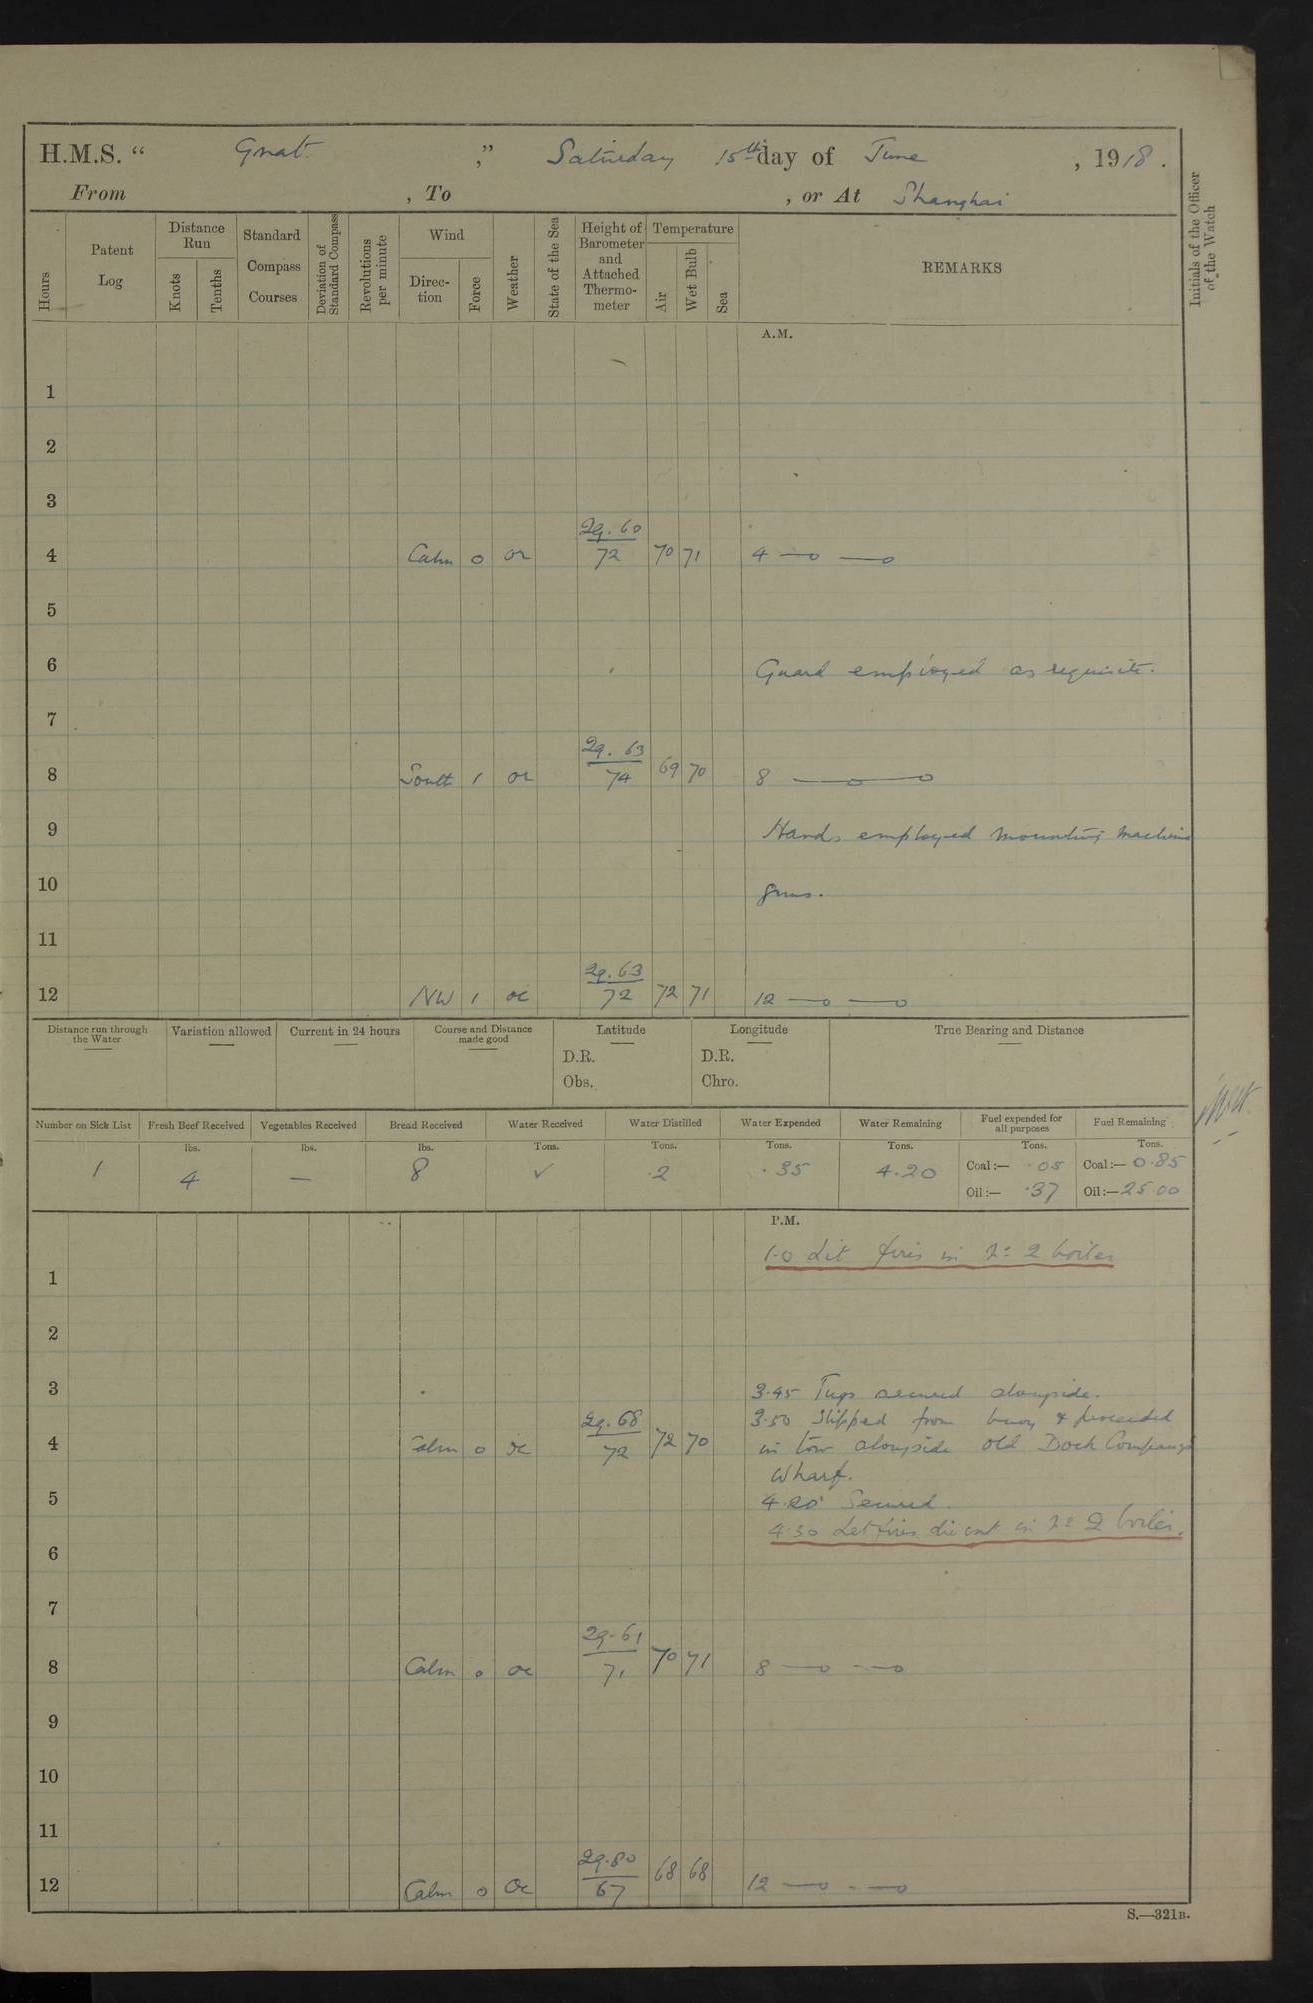 H.M.S. “ Gnat ,” Saturday 15th day of June , 1918.
From , To , or At Shanghai
Hours
Patent Log
Distance Run
Knots
Tenths
Standard Compass Courses
Deviation of Standard Compass
Revolutions per minute
Wind
Direction
Force
Weather
State of the Sea
Height of Barometer and Attached Thermometer
Temperature
Air
Wet Bulb
Sea
REMARKS
Initials of the Officer of the Watch
A.M.
1
2
3
29.60
4 Calm 0 or 72 70 71 4 —o —o
5
6 Guard employed as requisite.
7
29.63
8 South 1 or 74 69 70 8 —o—o
9 Hands employed mounting machine
10 guns.
11
29.63
12 NW 1 oc 72 72 71 12 —o —o
Distance run through the Water
Variation allowed
Current in 24 hours
Course and Distance made good
Latitude
D.R.
Obs.
Longitude
D.R.
Chro.
True Bearing and Distance
Number on Sick List
1
Fresh Beef Received
lbs.
4
Vegetables Received
lbs.
—
Bread Received
lbs.
8
Water Received
Tons.
✓
Water Distilled
Tons.
.2
Water Expended
Tons.
.35
Water Remaining
Tons.
4.20
Fuel expended for all purposes
Tons.
Coal:— .05
Oil:— .37
Fuel Remaining
Tons.
Coal:— 0.85
Oil:— 25.00
P.M.
1.0 Lit fires in No 2 boiler
1
2
3 3.45 Tugs secured alongside.
29.68 3.50 Slipped from buoy & proceeded
4 Calm 0 oc 72 72 70 in tow alongside old Dock Company's
Wharf.
5 4.20 Secured.
4.30 Let fires die out in No 2 boiler.
6
7
29.61
8 Calm 0 oc 71 70 71 8 —o —o
9
10
11
29.80
12 Calm 0 oc 67 68 68 12 —o —o
S.—321B.